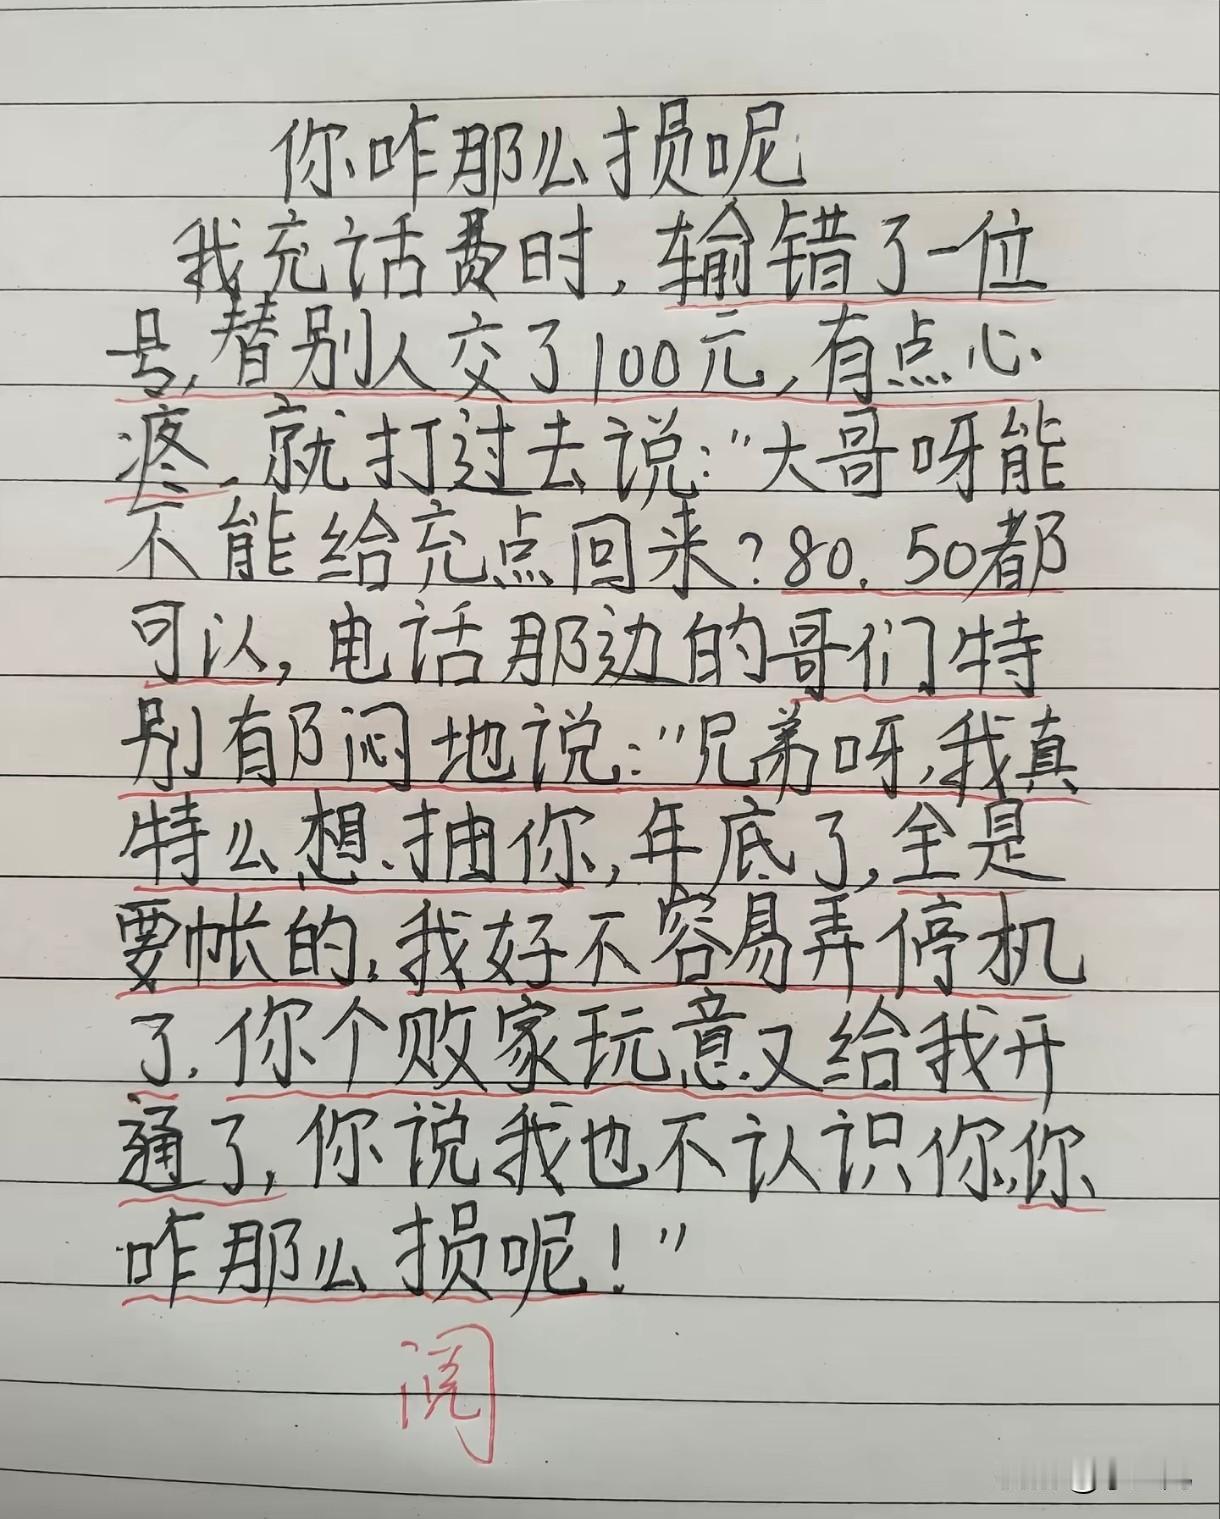 你咋那么损呢
我充话费时,输错了一位
号,替别人交了100元,有点心
疼.就打过去说:"大哥呀能
不能给充点回来?80.50都
可以,电话那边的哥们特
别郁闷地说:"兄弟呀,我真
特么想.抽你,年底了,全是
要帐的,我好不容易弄停机
了.你个败家玩意又给我开
通了,你说我也不认识你,你
咋那么损呢!"
阅